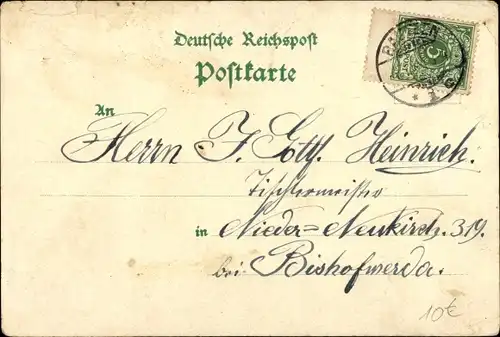 Deutsche Reichspost
Postkarte
An
Herrn J. Gottf. Heinrich.
Tischlermeister
in Nieder=Neukirch. 319.
bei Bishofwerda.
10€